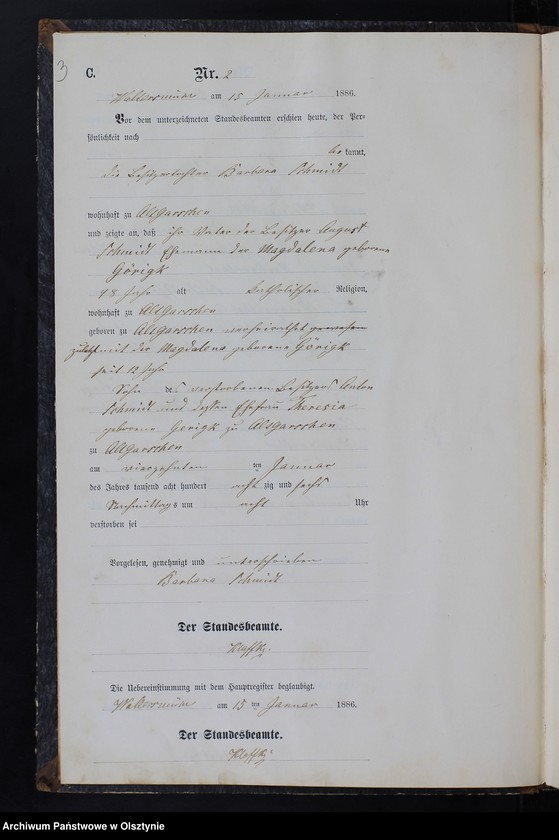 3
C. Nr. 2
Waltersmühl am 15 Januar 1886.
Vor dem unterzeichneten Standesbeamten erschien heute, der Per-
sönlichkeit nach
be kannt,
die Besitzertochter Barbara Schmidt
wohnhaft zu Altgarschen
und zeigte an, daß ihr Vater der Besitzer August
Schmidt Ehemann der Magdalena geborene
Görigk
48 Jahr alt katholischer Religion,
wohnhaft zu Altgarschen
geboren zu Altgarschen verheirathet gewesen
zuletzt mit der Magdalena geborene Görigk
seit 12 Jahr
Sohn des verstorbenen Besitzers Anton
Schmidt und dessen Ehefrau Theresia
geborene Gerigk zu Altgarschen
zu Altgarschen
am vierzehnten ten Januar
des Jahres tausend acht hundert acht zig und sechs
Nachmittags um acht Uhr
verstorben sei
Vorgelesen, genehmigt und unterschrieben
Barbara Schmidt
Der Standesbeamte.
Die Uebereinstimmung mit dem Hauptregister beglaubigt.
Waltersmühl am 15 ten Januar 1886.
Der Standesbeamte.
Archiwum Państwowe w Olsztynie